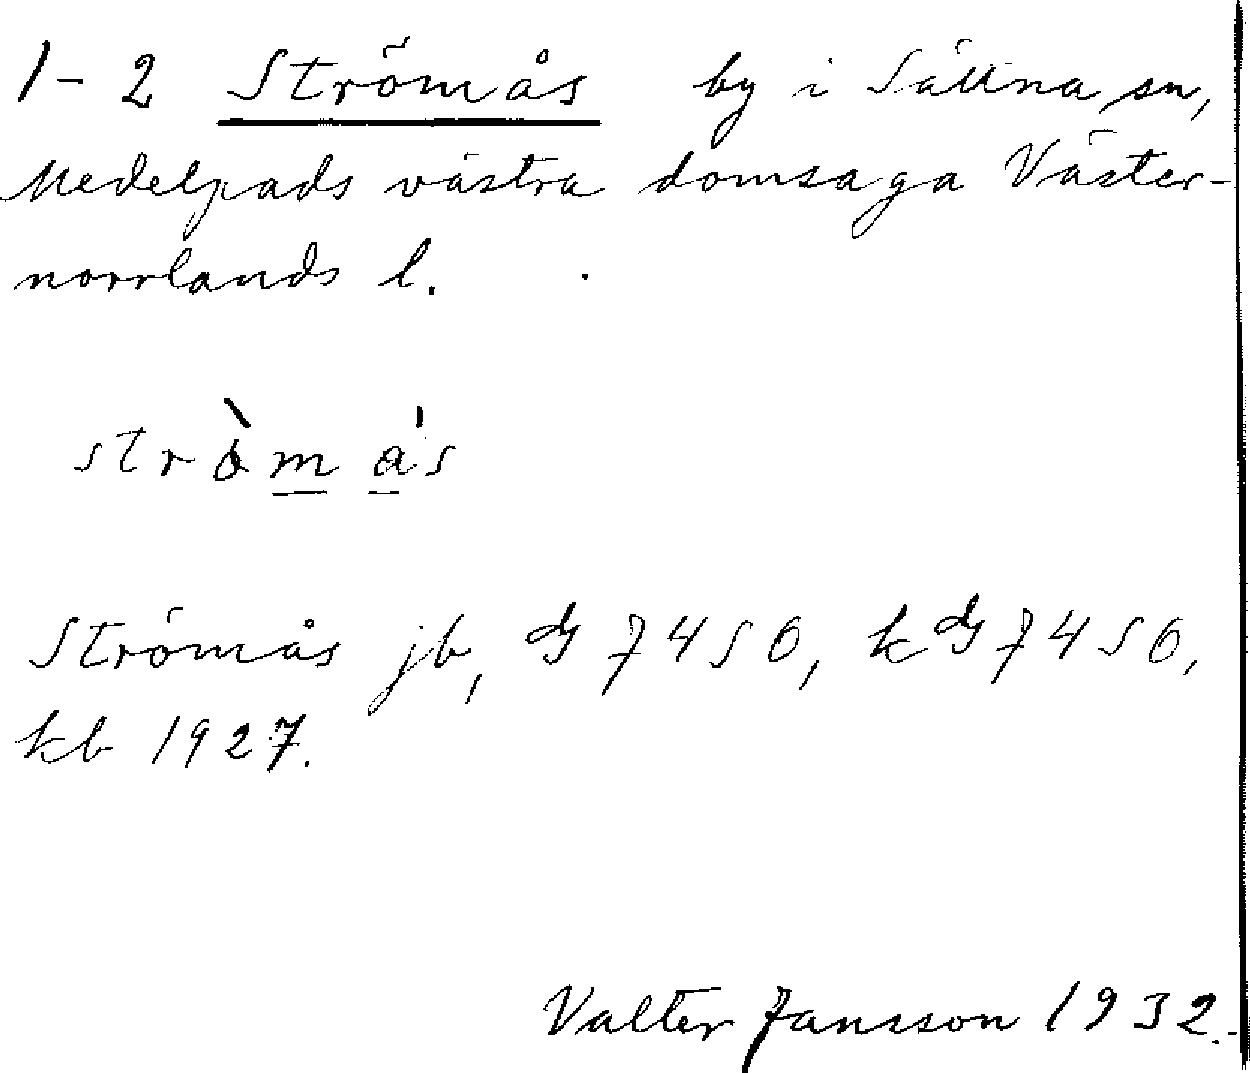 1-2 Strömås by i Sättna sn,
Medelpads västra domsaga Väster-
norrlands l.
stròm ås
Strömås jb, dg 7450, kdg 7450,
kb 1927.
Valter Jansson 1932.